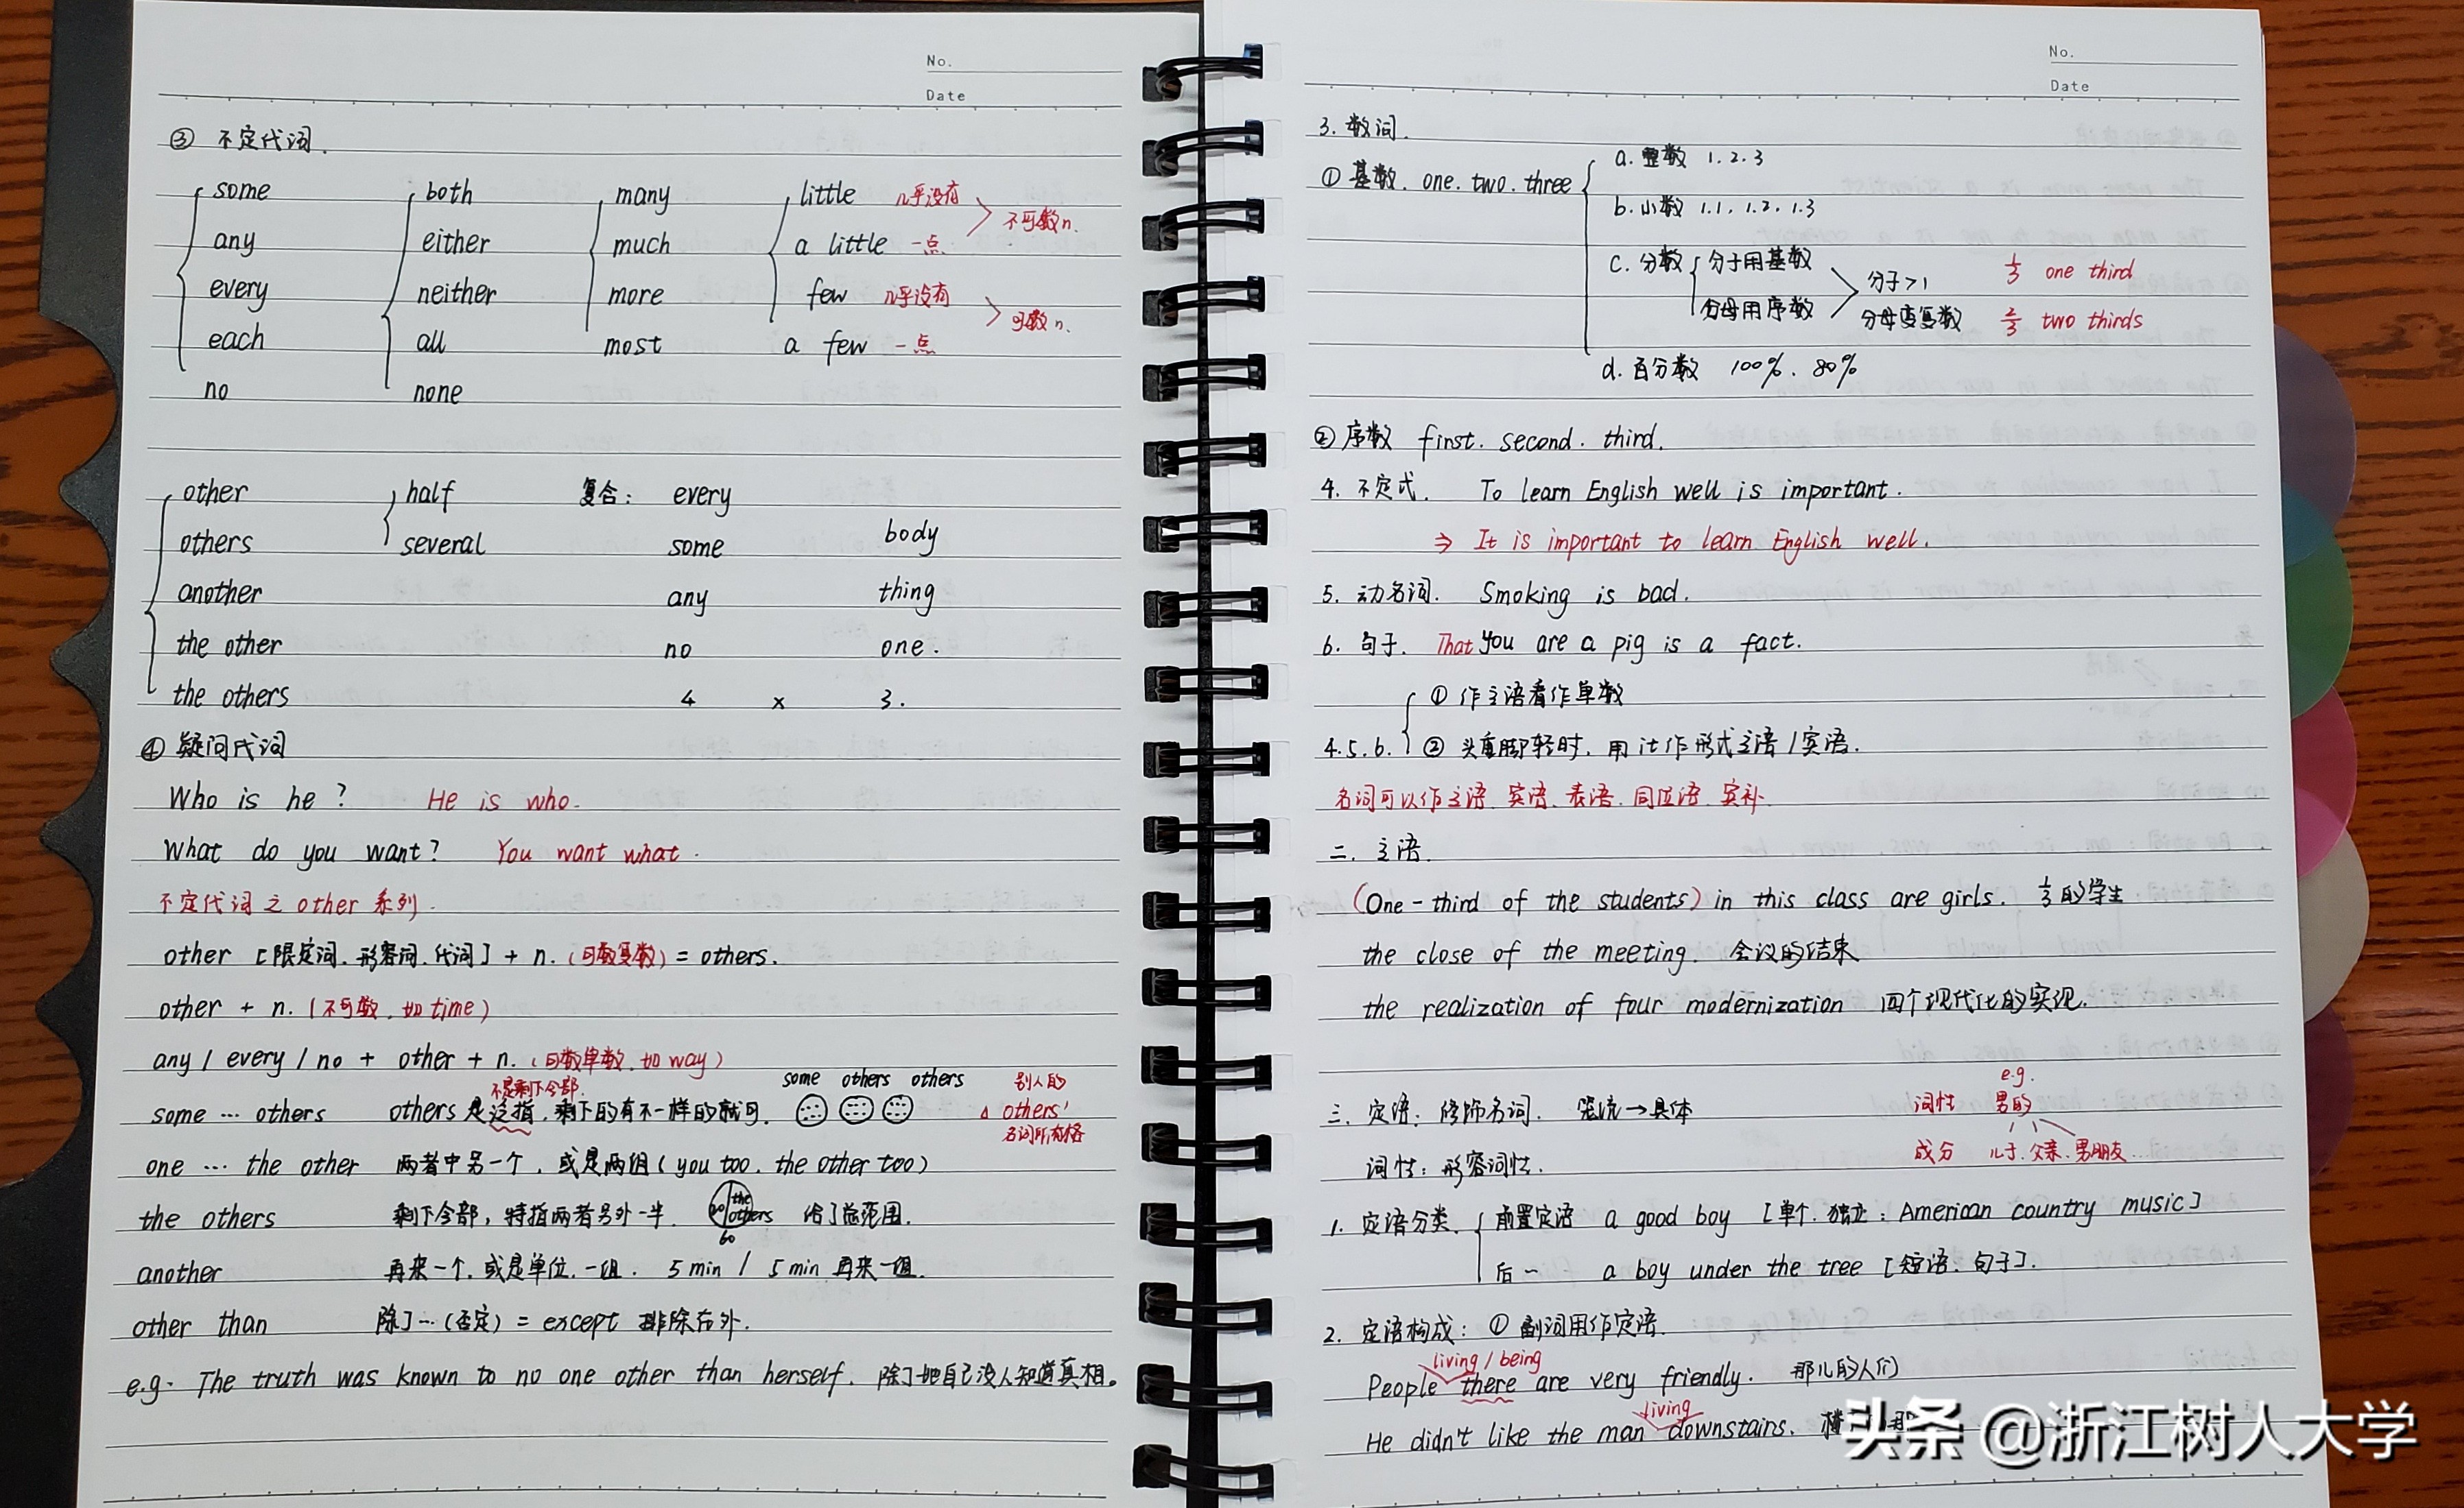 No.
Date
③ 不定代词.
some both many little 几乎没有
不可数n.
any either much a little 一点
every neither more few 几乎没有
可数n.
each all most a few 一点
no none
other half 复合: every
others several some body
another any thing
the other no one.
the others 4 x 3.
④ 疑问代词
Who is he ? He is who.
What do you want? You want what.
不定代词之 other 系列.
other [限定词、形容词、代词] + n. (可数复数) = others.
other + n. (不可数, 如 time)
any / every / no + other + n. (可数单数, 如 way)
不是剩下全部. some others others 别人的
some … others others 是泛指, 剩下的有不一样的就可. △ others'
名词所有格
one … the other 两者中另一个, 或是两组 (you too, the other too)
the others 剩下全部, 特指两者另外一半. the others 60 给了总范围.
another 再来一个, 或是单位, 一组. 5 min / 5 min 再来一组.
other than 除了… (否定) = except 排除在外.
e.g. The truth was known to no one other than herself. 除了她自己没人知道真相。
No.
Date
3. 数词.
① 基数. one. two. three a. 整数 1. 2. 3
b. 小数 1.1, 1.2, 1.3
c. 分数 分子用基数 分子>1 1/3 one third
分母用序数 分母变复数 2/3 two thirds
d. 百分数 100%. 80%
② 序数 first. second. third.
4. 不定式. To learn English well is important.
⇒ It is important to learn English well.
5. 动名词. Smoking is bad.
6. 句子. That You are a pig is a fact.
① 作主语看作单数
4.5.6. ② 头重脚轻时, 用 it 作形式主语 / 宾语.
名词可以作主语、宾语、表语、同位语、宾补.
二. 主语.
(One-third of the students) in this class are girls. 1/3 的学生
the close of the meeting. 会议的结束
the realization of four modernization 四个现代化的实现.
e.g.
三. 定语: 修饰名词. 笼统→具体 词性 男的
词性: 形容词性. 成分 儿子. 父亲. 男朋友…
1. 定语分类. 前置定语 a good boy [单个. 独立: American country music]
后 ~ a boy under the tree [短语. 句子].
2. 定语构成: ① 副词用作定语.
living / being
People there are very friendly. 那儿的人们
living
He didn't like the man downstairs.
头条 @浙江树人大学